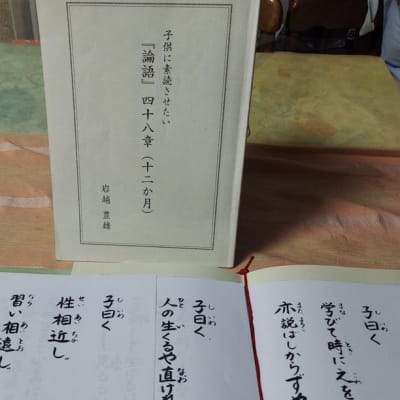 子供に素読させたい
『論語』四十八章(十二か月)
岩越 豊雄
子曰く
学びて時にえを
亦説はしからずや
子曰く
人の生くるや直けれ
子曰く
性相近し。
習い相遠し。